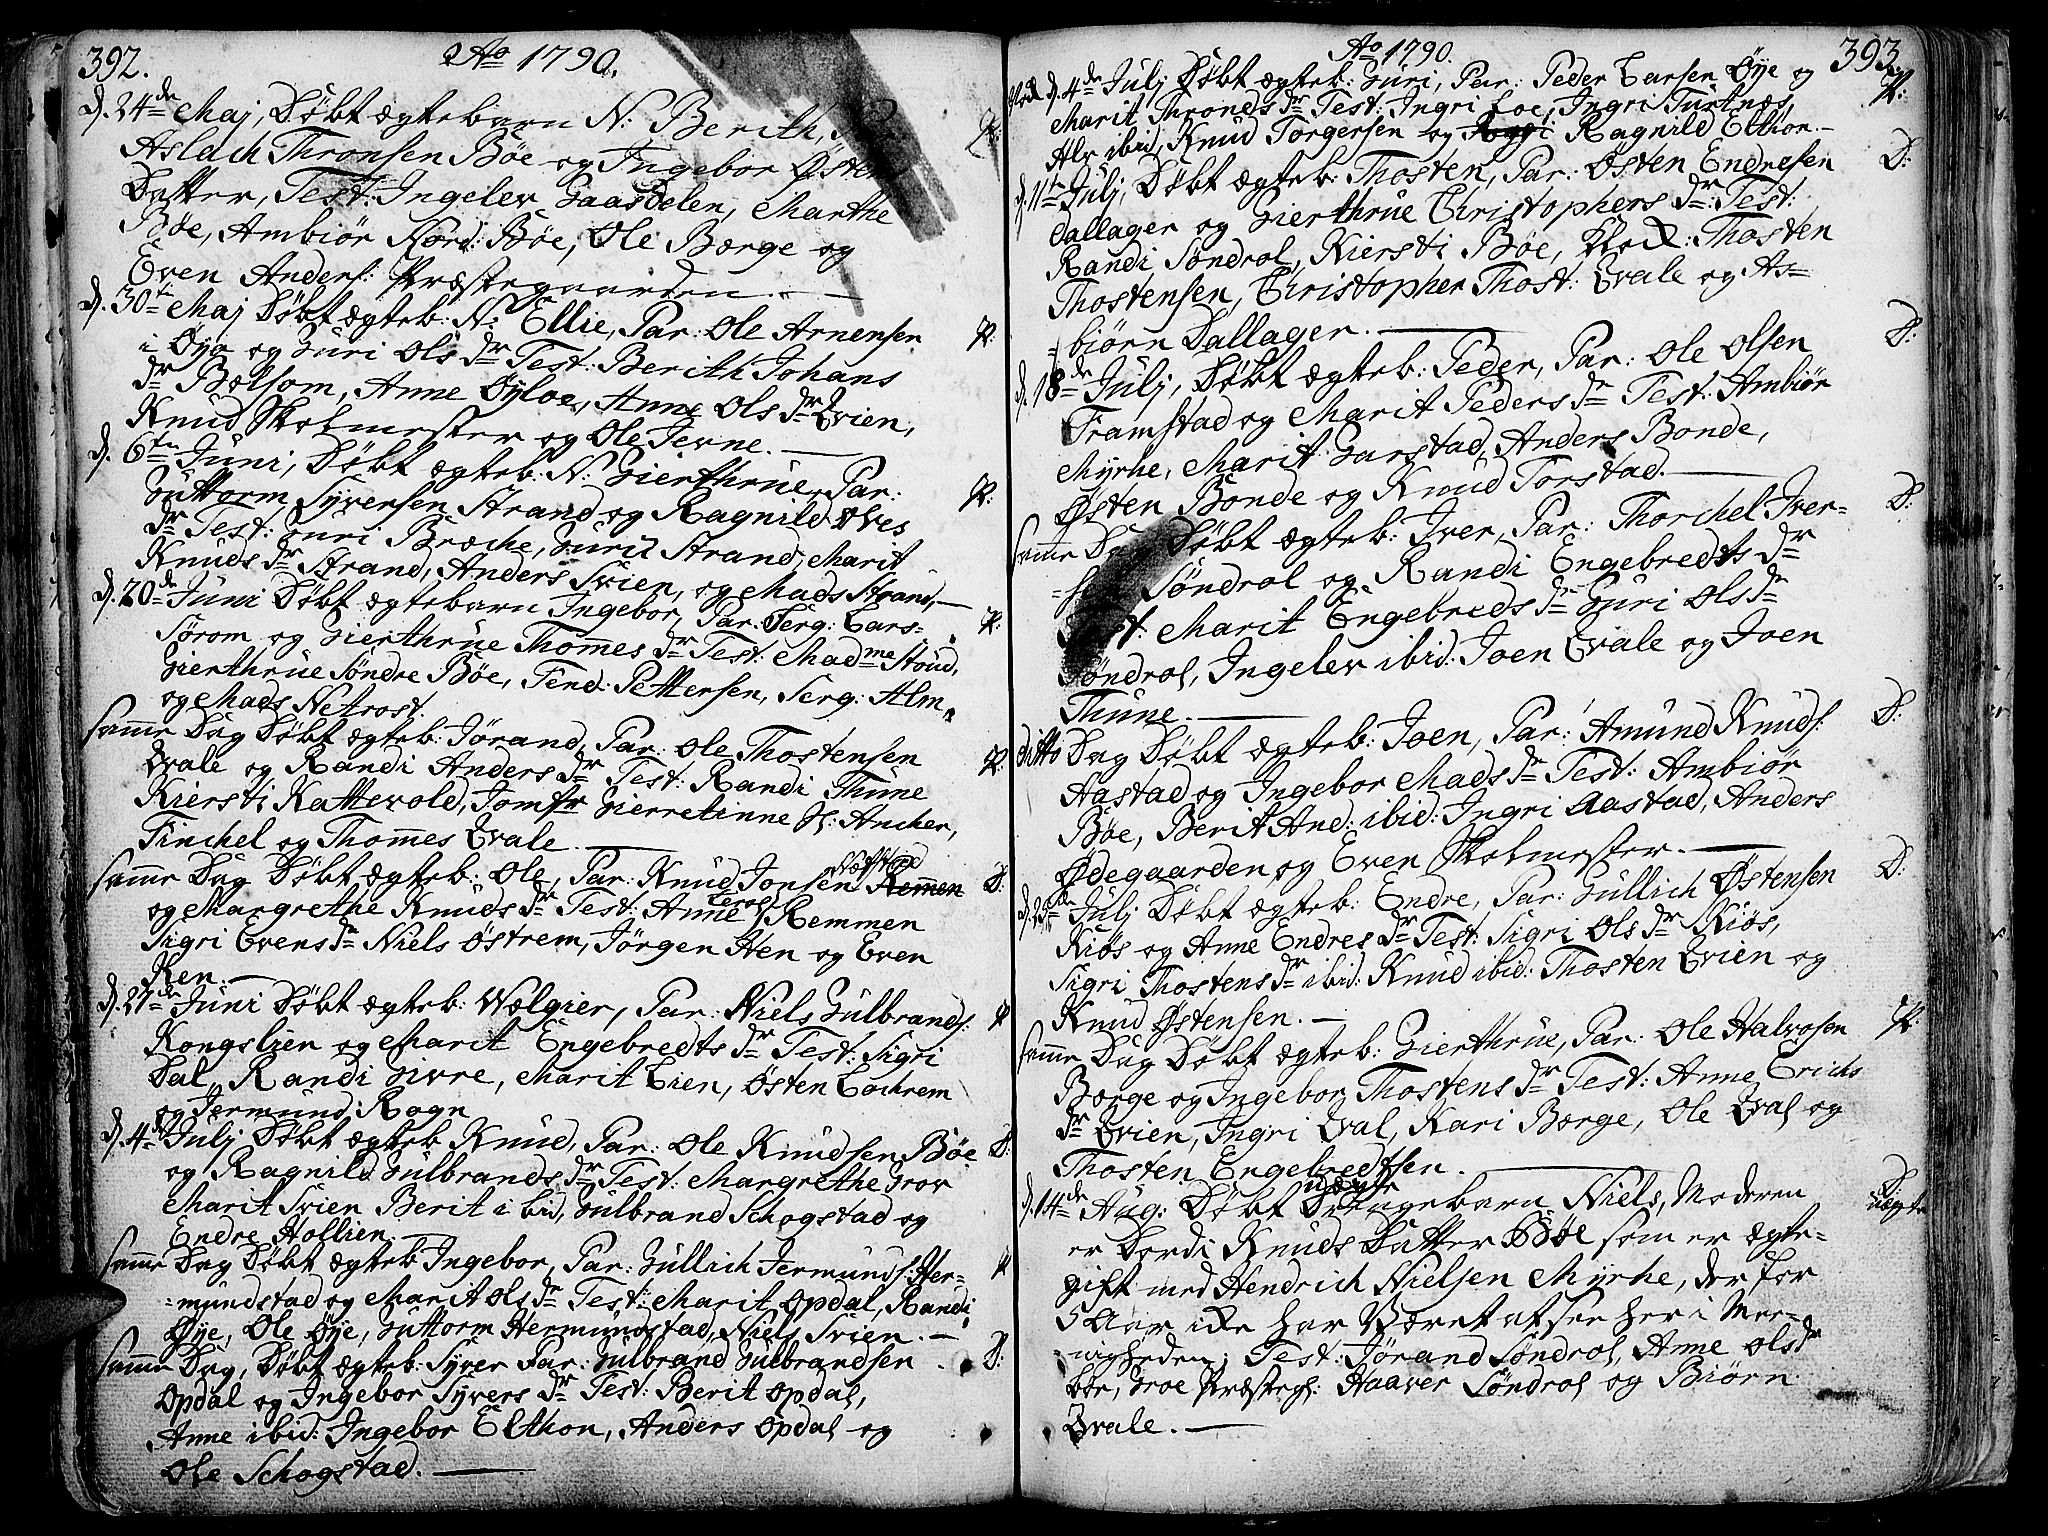 392.
Ao 1790.
d. 24de Maj, Døbt ægtebarn N: Berith,
Aslach Thronsen Bøe og Ingebor Østens
Datter, Test: Ingelev Gaasdelen, Marthe
Bøe, Ambiør Nord: Bøe, Ole Børge og
Even Anders: Præstegaarden.
d. 30te Maj Døbt ægteb: N: Ellie, Par: Ole Arnensen
i Øya og Guri Ols dr Test: Berith Johans
dr Bølsom, Anne Øyloe, Anne Ols dr Qvien,
Knud Skolmester og Ole Jevne.
d. 6te Juni, Døbt ægteb: N: Gierthrue, Par:
Guttorm Syversen Strand og Ragnild Oles
dr Test: Guri Bræche, Guri Strand, Marit
Knuds dr Strand, Anders Svien, og Mads Strand,
d. 20de Juni Døbt ægtebarn Ingebor, Par: Serg: Lars
Sørom og Gierthrue Thommes dr Test: Madme Stoud,
Gierthrue Søndre Bøe, Fend: Pettersen, Serg: Alm
og Mads Nefrost.
samme Dag Døbt ægteb: Jørand, Par: Ole Thostensen
Qvale og Randi Anders dr Test: Randi Thune
Kiersti Kattevold, Jomfr Gierretinne H: Ancher,
Finchel og Thommes Qvale
samme Dag Døbt ægteb: Ole, Par: Knud Jonsen Remmen
og Margrethe Knuds dr Test: Anne Remmen
Sigri Evens dr Niels Østrem, Jørgen Hen og Even
Ren.
d. 27de Juni Døbt ægteb: Vølgier, Par: Niels Gulbrands:
Kongslien og Marit Engebredts dr Test: Sigri
Dal, Randi Givre, Marit Lien, Østen Lochrem
og Jermund Rogn
d. 4de Julj Døbt ægteb Knud, Par: Ole Knudsen Bøe
og Ragnild Gulbrands dr Test: Margrethe Grov
Marit Svien Berit ibid, Gulbrand Schogstad og
Endre Hollien.
samme Dag Døbt ægteb Ingebor, Par: Gullich Jermunds: Her-
-mundstad og Marit Ols dr Test: Marit Opdal, Randi
Øye, Ole Øye, Guttorm Hermundstad, Niels Svien.
samme Dag, Døbt ægteb: Syver Par: Gulbrand Gulbrandsen
Opdal og Ingebor Syvers dr Test: Berit Opdal,
Anne ibid: Ingebor Elthon, Anders Opdal og
Ole Schogstad.
Ao 1790.
393
d. 4de Julj Døbt ægteb: Guri, Par: Peder Larsen Øye og
Marit Thronds dr Test: Ingri Loe, Ingri Turtnes,
Alv ibid, Knud Torgersen og Ragnild Elthon.
d. 11te Julj, Døbt ægteb: Thosten, Par: Østen Endresen
Dallager og Gierthrue Christophers dr: Test:
Randi Søndrol, Kiersti Bøe, Klock: Thosten
Thostensen, Christopher Thost: Qvale og As-
-biørn Dallager.
d. 18de Julj, Døbt ægteb: Peder, Par: Ole Olsen
Framstad og Marit Peders dr Test: Ambiør
Myrhe, Marit Garstad, Anders Bonde,
Østen Bonde og Knud Torstad.
samme Dag Døbt ægteb: Iver, Par: Thorchel Iver-
Søndrol og Randi Engebredts dr
Test: Marit Engebreds dr Guri Ols dr
Søndrol, Ingelev ibid: Joen Qvale og Joen
Thune.
ditto Dag Døbt ægteb: Joen, Par: Amund Knuds:
Aastad og Ingebor Mads dr Test: Ambiør
Bøe, Berit And: ibid: Ingri Aastad, Anders
Ødegaarden og Even Skolmester.
d. 25de Julj Døbt ægteb: Endre, Par: Gullich Østensen
Kiøs og Anne Endres dr Test: Sigri Ols dr Kiøs,
Sigri Thostens dr ibid: Knud ibid: Thosten Qvien og
Knud Østensen.
samme Dag Døbt ægteb: Gierthrue, Par: Ole Halvosen
Børge og Ingebor Thostens dr Test: Anne Erichs
dr Qvien, Ingri Qval, Kari Børge, Ole Qval og
Thosten Engebredtsen.
d. 14de Aug: Døbt uægte barn Niels, Moderen
er Dordi Knuds Datter Bøe som er ægte-
gift med Hendrich Nielsen Myrhe, der for
5 Aar icke har Været at see her i Mee-
-nigheden; Test: Jørand Søndrol, Anne Ols dr
Bøe, Groe Præsteg: Haaver Søndrol og Biørn
Qvale.
uægte